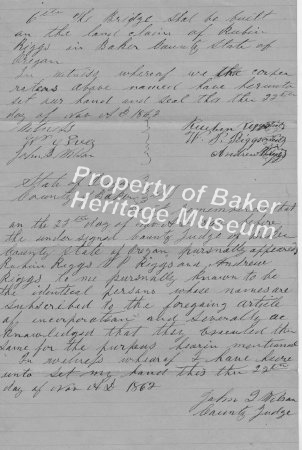 6th The Bridge shal be built
on the land claim of Rubin
Riggs in Baker County State of
Oregon
In witness whereof we the corpor
rations above named have hereunto
set our hand and seal this the 22th
day of Nov A D 1862
Witness
Reuben Riggs
W. J. Riggs
John Q Wilson
Andrew Riggs
State of
County of Baker
that
on the 22th day of
the under signed County Judge
County State of Oregon personally appeared
Rubin Riggs W J Riggs and Andrew
Riggs to me personally known to be
the identical persons whose names are
subscribed to the foregoing article
of incorporation and severally ac
knowledged that they executed the
same for the purpos herin mentioned
In witness wherof I have here
unto set my hand this the 22th
day of Nov A D 1862
John Q Wilson
County Judge
Property of Baker
Heritage Museum